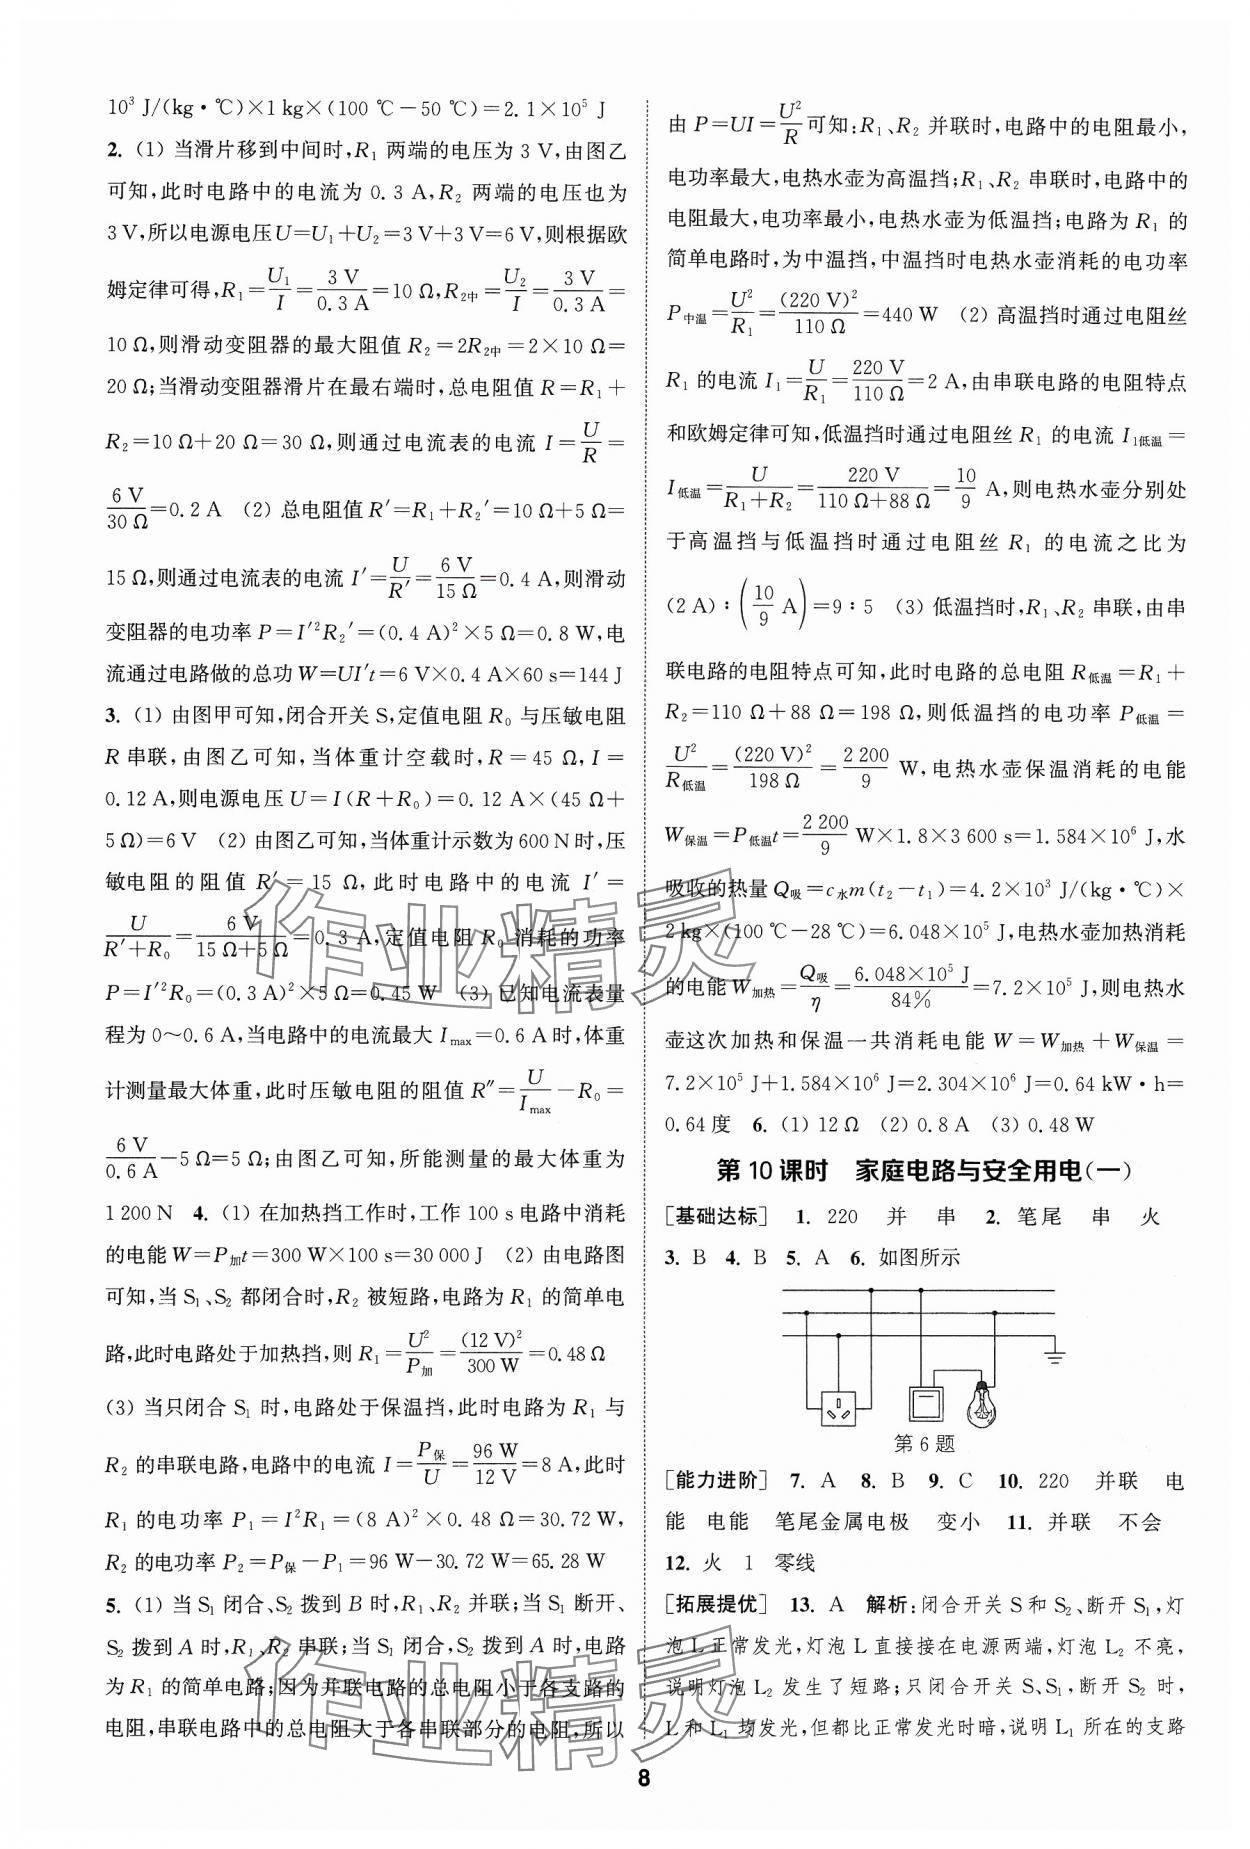 10³ J/(kg·℃)×1 kg×(100 ℃−50 ℃)=2.1×10⁵ J
2. (1) 当滑片移到中间时,R₁ 两端的电压为 3 V,由图乙
可知,此时电路中的电流为 0.3 A,R₂ 两端的电压也为
3 V,所以电源电压U=U₁+U₂=3 V+3 V=6 V,则根据欧
姆定律可得,R₁=U₁/I=3 V/0.3 A=10 Ω,R₂中=U₂/I=3 V/0.3 A=
10 Ω,则滑动变阻器的最大阻值 R₂=2R₂中=2×10 Ω=
20 Ω;当滑动变阻器滑片在最右端时,总电阻值 R=R₁+
R₂=10 Ω+20 Ω=30 Ω,则通过电流表的电流 I=U/R=
6 V/30 Ω=0.2 A (2) 总电阻值R′=R₁+R₂′=10 Ω+5 Ω=
15 Ω,则通过电流表的电流 I′=U/R′=6 V/15 Ω=0.4 A,则滑动
变阻器的电功率 P=I′²R₂′=(0.4 A)²×5 Ω=0.8 W,电
流通过电路做的总功 W=UI′t=6 V×0.4 A×60 s=144 J
3. (1) 由图甲可知,闭合开关 S,定值电阻 R₀ 与压敏电阻
R 串联,由图乙可知,当体重计空载时,R=45 Ω,I=
0.12 A,则电源电压 U=I(R+R₀)=0.12 A×(45 Ω+
5 Ω)=6 V (2) 由图乙可知,当体重计示数为 600 N 时,压
敏电阻的阻值 R′=15 Ω,此时电路中的电流 I′=
U/(R′+R₀)=6 V/(15 Ω+5 Ω)=0.3 A,定值电阻 R₀ 消耗的功率
P=I′²R₀=(0.3 A)²×5 Ω=0.45 W (3) 已知电流表量
程为 0～0.6 A,当电路中的电流最大 Imax=0.6 A 时,体重
计测量最大体重,此时压敏电阻的阻值 R″=U/Imax−R₀=
6 V/0.6 A−5 Ω=5 Ω;由图乙可知,所能测量的最大体重为
1 200 N 4. (1) 在加热挡工作时,工作 100 s 电路中消耗
的电能 W=P加t=300 W×100 s=30 000 J (2) 由电路图
可知,当 S₁、S₂ 都闭合时,R₂ 被短路,电路为 R₁ 的简单电
路,此时电路处于加热挡,则 R₁=U²/P加=(12 V)²/300 W=0.48 Ω
(3) 当只闭合 S₁ 时,电路处于保温挡,此时电路为 R₁ 与
R₂ 的串联电路,电路中的电流 I=P保/U=96 W/12 V=8 A,此时
R₁ 的电功率 P₁=I²R₁=(8 A)²×0.48 Ω=30.72 W,
R₂ 的电功率 P₂=P保−P₁=96 W−30.72 W=65.28 W
5. (1) 当 S₁ 闭合、S₂ 拨到 B 时,R₁、R₂ 并联;当 S₁ 断开、
S₂ 拨到 A 时,R₁、R₂ 串联;当 S₁ 闭合,S₂ 拨到 A 时,电路
为 R₁ 的简单电路;因为并联电路的总电阻小于各支路的
电阻,串联电路中的总电阻大于各串联部分的电阻,所以
由 P=UI=U²/R可知:R₁、R₂ 并联时,电路中的电阻最小,
电功率最大,电热水壶为高温挡;R₁、R₂ 串联时,电路中的
电阻最大,电功率最小,电热水壶为低温挡;电路为 R₁ 的
简单电路时,为中温挡,中温挡时电热水壶消耗的电功率
P中温=U²/R₁=(220 V)²/110 Ω=440 W (2) 高温挡时通过电阻丝
R₁ 的电流 I₁=U/R₁=220 V/110 Ω=2 A,由串联电路的电阻特点
和欧姆定律可知,低温挡时通过电阻丝 R₁ 的电流 I₁低温=
I低温=U/(R₁+R₂)=220 V/(110 Ω+88 Ω)=10/9 A,则电热水壶分别处
于高温挡与低温挡时通过电阻丝 R₁ 的电流之比为
(2 A)∶(10/9 A)=9∶5 (3) 低温挡时,R₁、R₂ 串联,由串
联电路的电阻特点可知,此时电路的总电阻 R低温=R₁+
R₂=110 Ω+88 Ω=198 Ω,则低温挡的电功率 P低温=
U²/R低温=(220 V)²/198 Ω=2 200/9 W,电热水壶保温消耗的电能
W保温=P低温t=2 200/9 W×1.8×3 600 s=1.584×10⁶ J,水
吸收的热量 Q吸=c水m(t₂−t₁)=4.2×10³ J/(kg·℃)×
2 kg×(100 ℃−28 ℃)=6.048×10⁵ J,电热水壶加热消耗
的电能 W加热=Q吸/η=6.048×10⁵ J/84%=7.2×10⁵ J,则电热水
壶这次加热和保温一共消耗电能 W=W加热+W保温=
7.2×10⁵ J+1.584×10⁶ J=2.304×10⁶ J=0.64 kW·h=
0.64度 6. (1) 12 Ω (2) 0.8 A (3) 0.48 W
第 10 课时 家庭电路与安全用电(一)
[基础达标] 1. 220 并 串 2. 笔尾 串 火
3. B 4. B 5. A 6. 如图所示
第 6 题
[能力进阶] 7. A 8. B 9. C 10. 220 并联 电
能 电能 笔尾金属电极 变小 11. 并联 不会
12. 火 1 零线
[拓展提优] 13. A 解析:闭合开关 S 和 S₂、断开 S₁,灯
泡 L 正常发光,灯泡 L 直接接在电源两端,灯泡 L₂ 不亮,
说明灯泡 L₂ 发生了短路;只闭合开关 S、S₁,断开 S₂ 时,
L 和 L₁ 均发光,但都比正常发光时暗,说明 L₁ 所在的支路
8
作业精灵
作业精灵